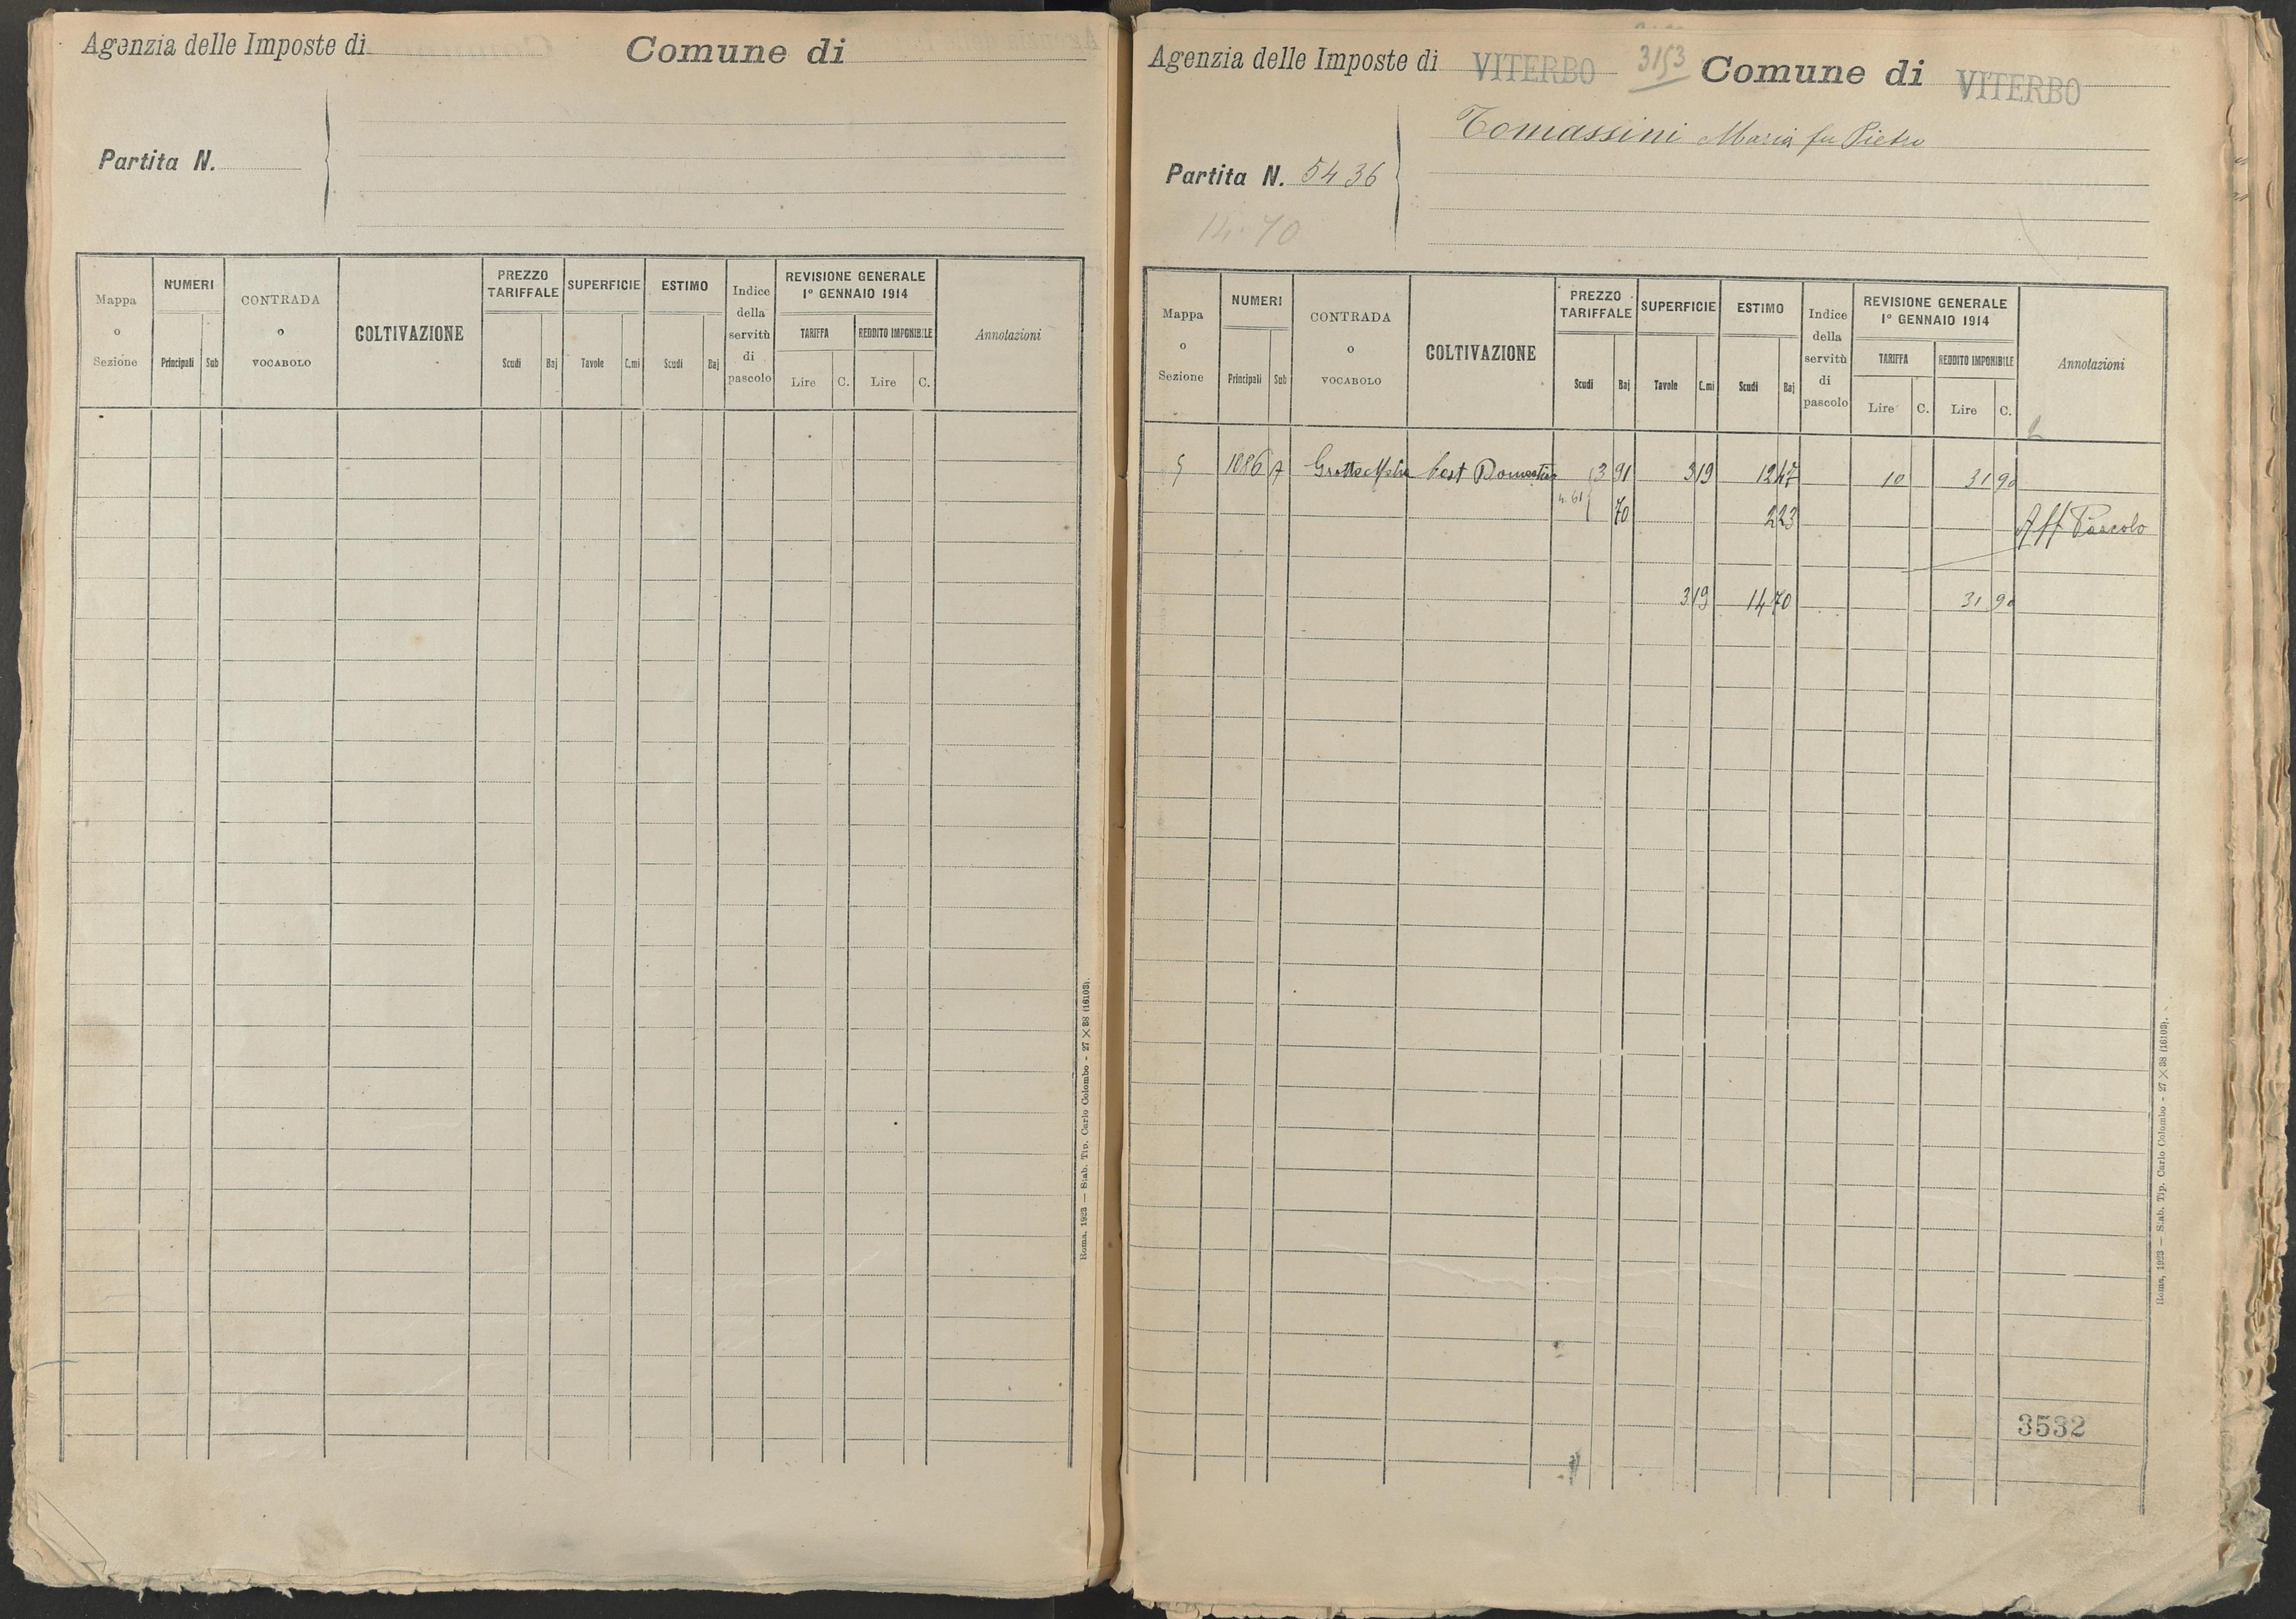 Agenzia delle Imposte di
Comune di
Partita N.
Mappa o Sezione
NUMERI
Principali
Sub
CONTRADA o VOCABOLO
COLTIVAZIONE
PREZZO TARIFFALE
Scudi
Baj
SUPERFICIE
Tavole
C.mi
ESTIMO
Scudi
Baj
Indice della servitù di pascolo
REVISIONE GENERALE
1° GENNAIO 1914
TARIFFA
Lire
C.
REDDITO IMPONIBILE
Lire
C.
Annotazioni
Roma, 1923 — Stab. Tip. Carlo Colombo - 27 × 38 (16103).
Agenzia delle Imposte di VITERBO 3153 Comune di VITERBO
Tomassini Maria fu Pietro
Partita N. 5436
14.70
Mappa o Sezione
NUMERI
Principali
Sub
CONTRADA o VOCABOLO
COLTIVAZIONE
PREZZO TARIFFALE
Scudi
Baj
SUPERFICIE
Tavole
C.mi
ESTIMO
Scudi
Baj
Indice della servitù di pascolo
REVISIONE GENERALE
1° GENNAIO 1914
TARIFFA
Lire
C.
REDDITO IMPONIBILE
Lire
C.
Annotazioni
5 1086 A 3 91 3 19 12 47 10 31 90
4.61 70 2 23 Aff Pascolo
3 19 14 70 31 90
3532
Roma, 1923 — Stab. Tip. Carlo Colombo - 27 × 38 (16103).